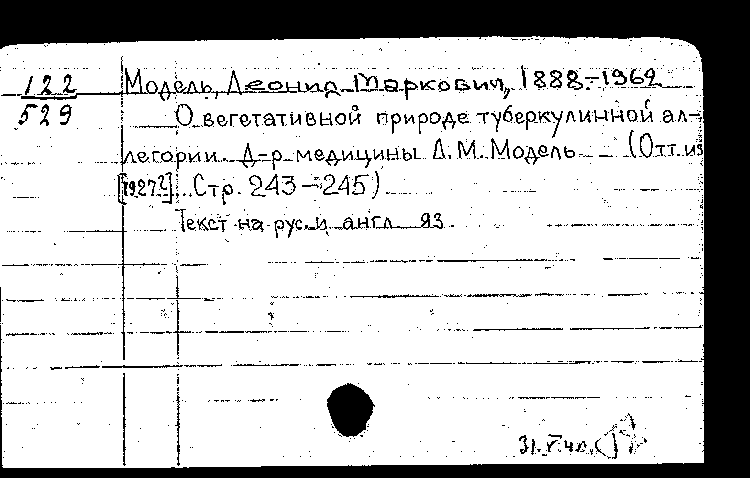 122
529
Модель, Леонид Маркович, 1888-1962
О вегетативной природе туберкулинной ал-
легории. Д-р медицины Л.М. Модель (Отт. из
[1927?]. Стр. 243-245)
Текст на рус. и англ. яз.
31.V.